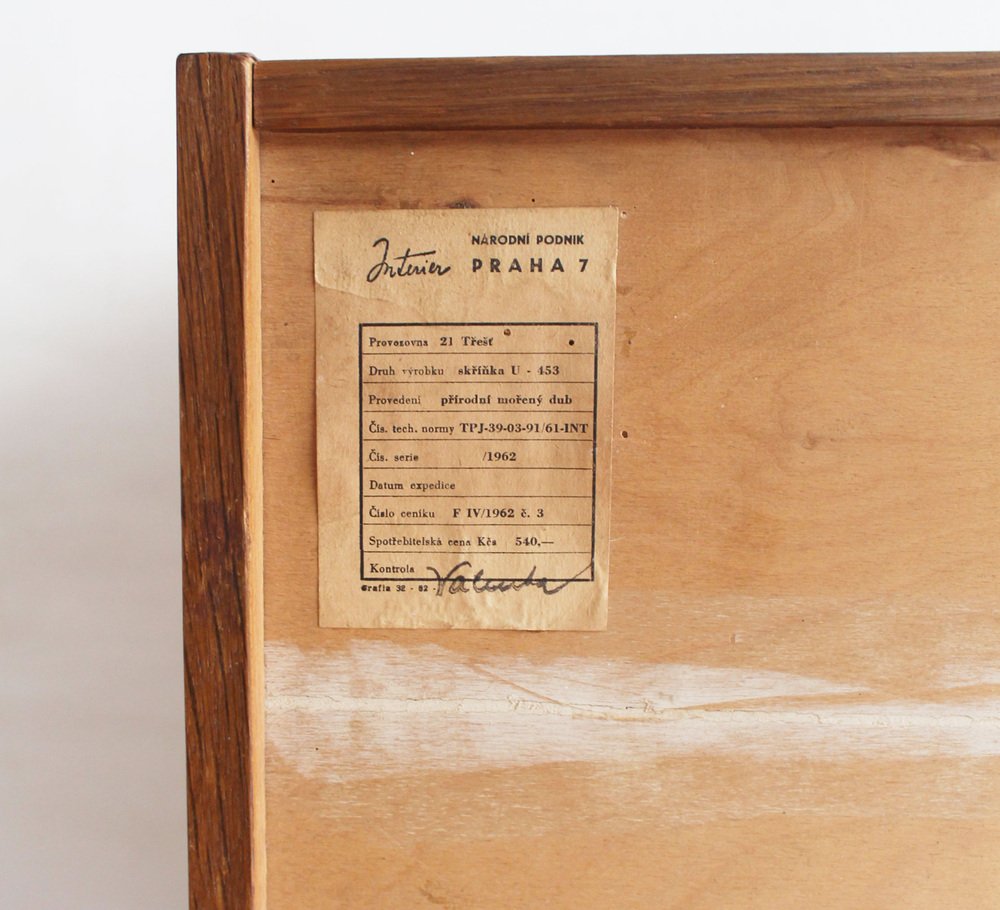 Interier
NÁRODNÍ PODNIK
PRAHA 7
Provozovna 21 Třešť
Druh výrobku skříňka U - 453
Provedení přírodní mořený dub
Čís. tech. normy TPJ-39-03-91/61-INT
Čís. serie /1962
Datum expedice
Číslo ceníku F IV/1962 č. 3
Spotřebitelská cena Kčs 540,—
Kontrola
Grafia 32 - 62 -